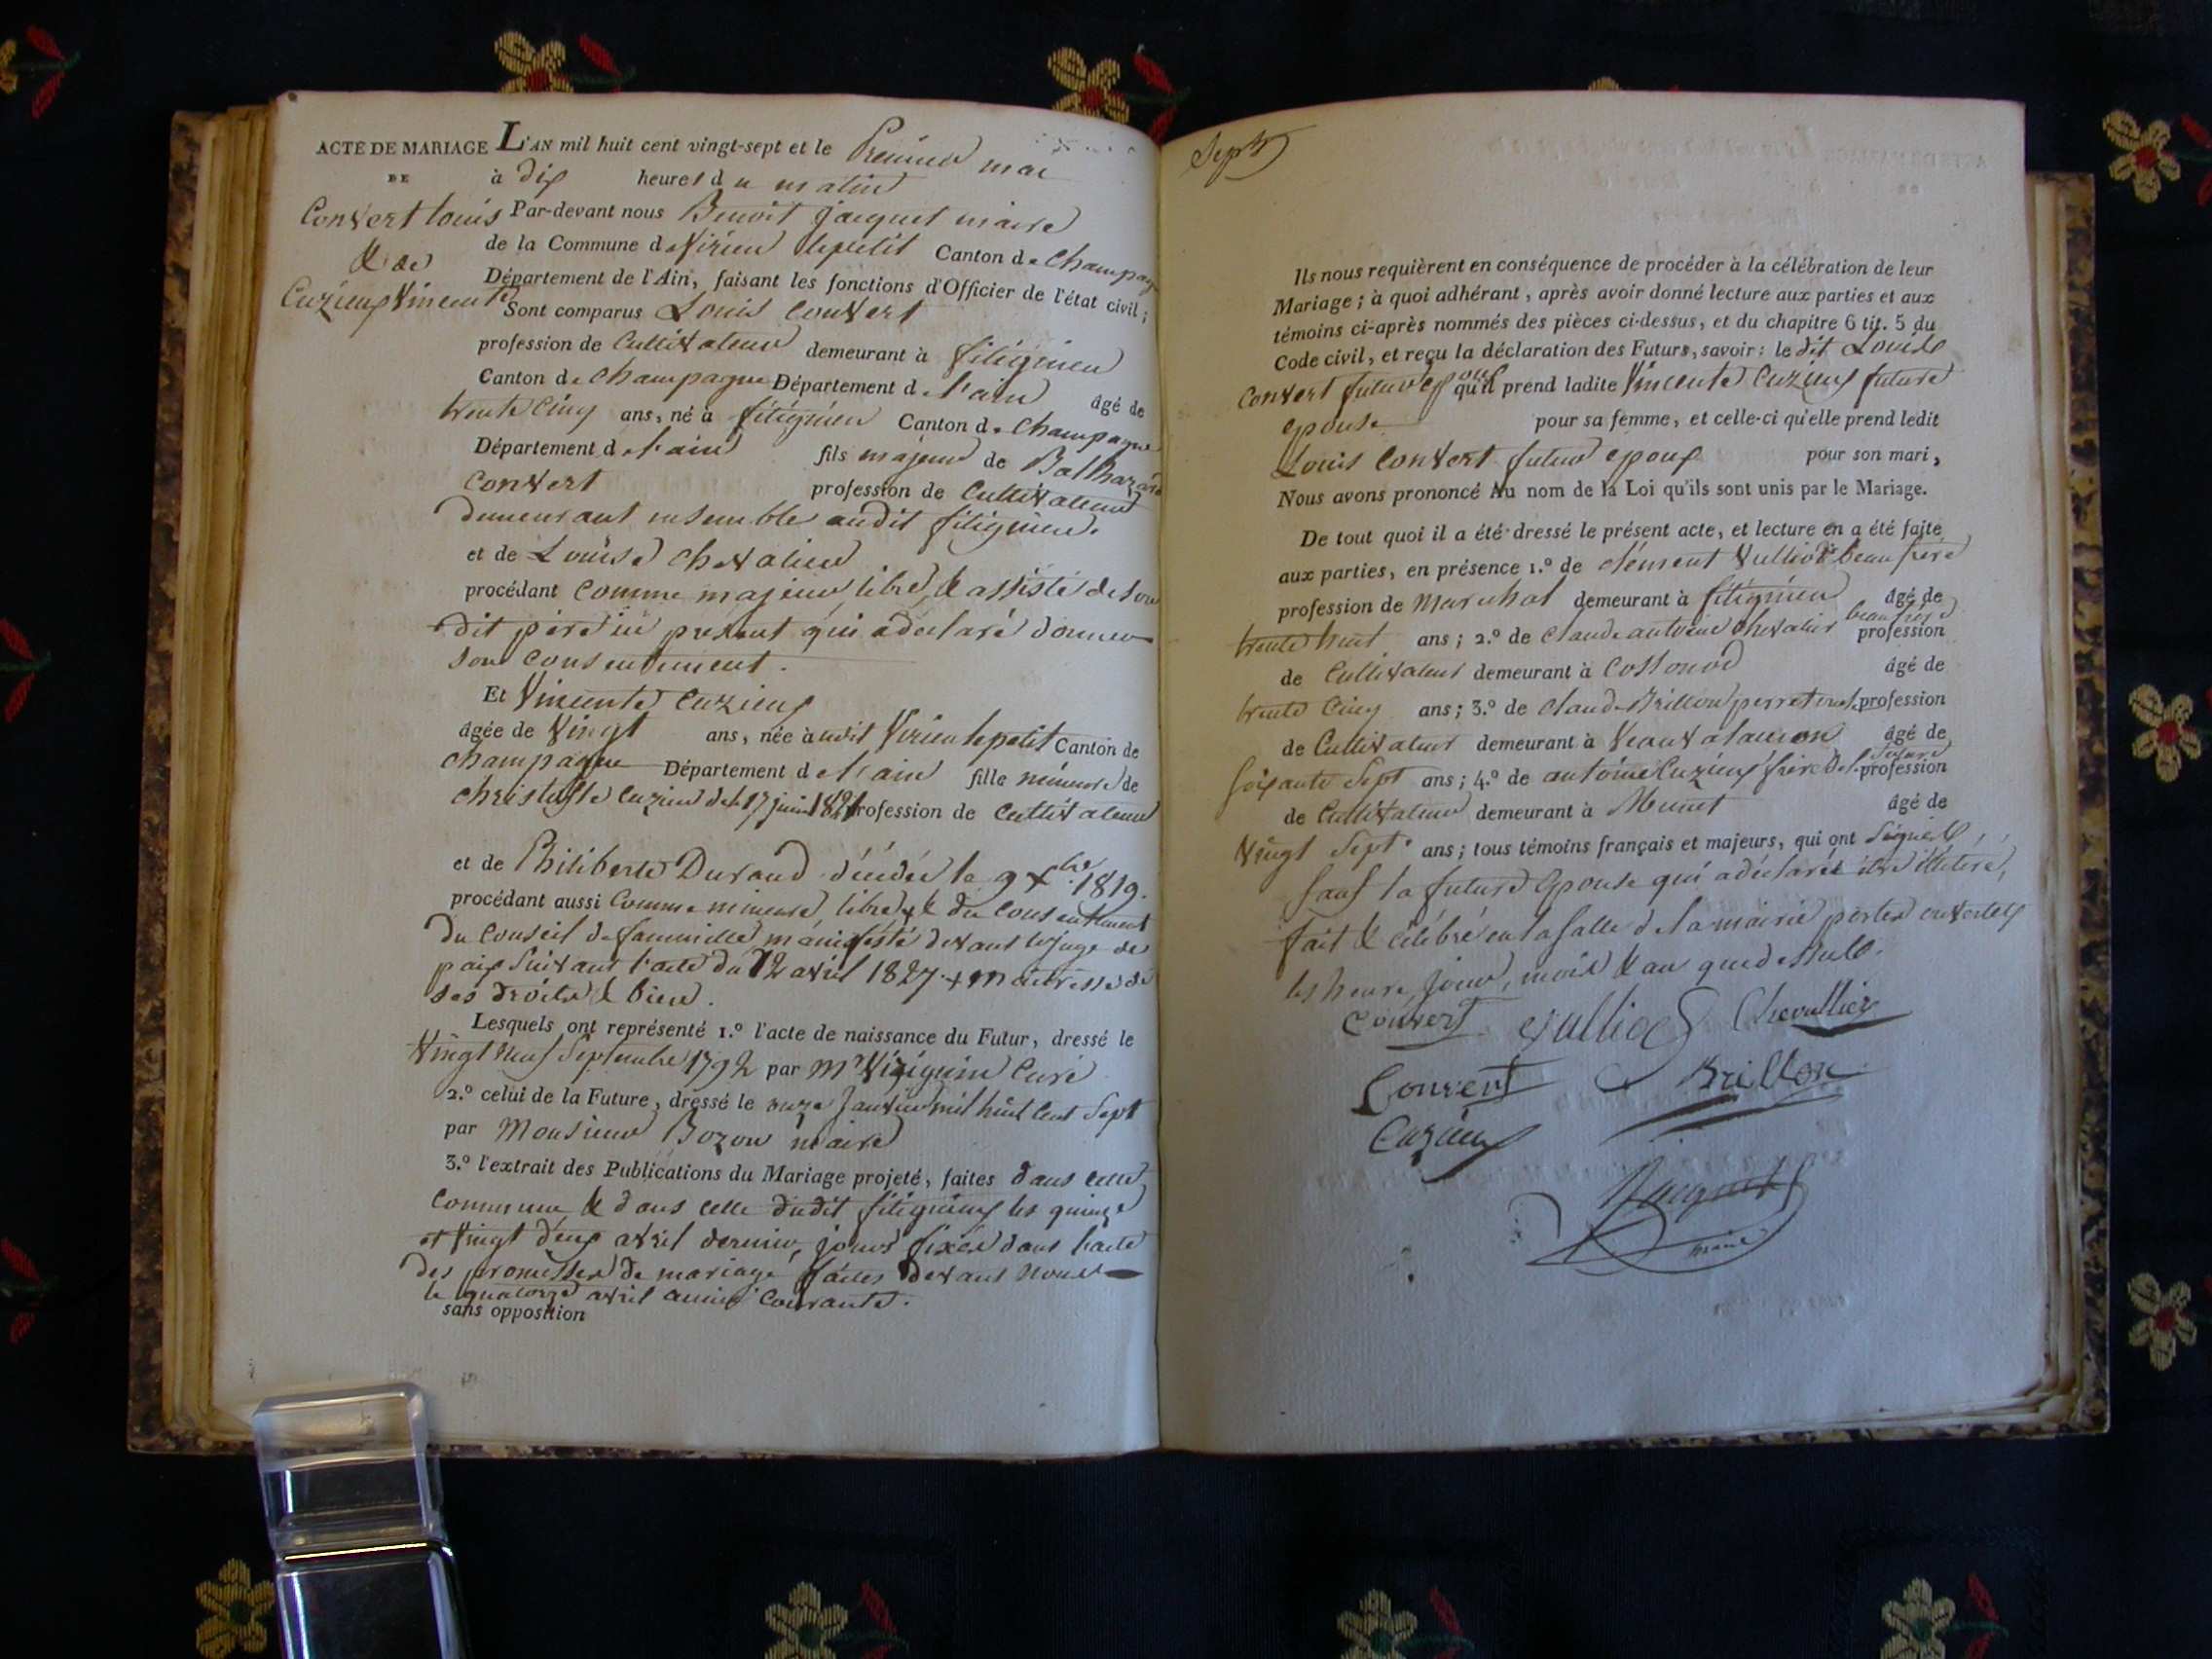 ACTE DE MARIAGE
DE
Convert Louis
& de
Cuzieux Vincente
L'AN mil huit cent vingt-sept et le Premier mai
à dix heures du matin
Par-devant nous Benoit jacquet maire
de la Commune de Virieu lepetit Canton de Champagne
Département de l'Ain, faisant les fonctions d'Officier de l'état civil;
Sont comparus Louis Convert
profession de Cultivateur demeurant à fitignieu
Canton de Champagne Département de l'ain âgé de
trente Cinq ans, né à fitignieu Canton de Champagne
Département de l'ain fils majeur de Balthazard
Convert profession de Cultivateur
demeurant ensemble audit fitignieu.
et de Louise Chevalier
procédant comme majeur, libre, & assisté de son
dit père ici present qui a déclaré donner
son consentement.
Et Vincente Cuzieux
âgée de Vingt ans, née audit Virieu lepetit Canton de
champagne Département de l'ain fille mineure de
christophe Cuzieux 17 juin 1821 profession de Cultivateur
et de Philiberte Durand décédée le 9 Xbre 1819.
procédant aussi Comme mineure, libre, & du Consentement
du Conseil de fammille manifesté devant le juge de
paix suivant l'acte du 12 avril 1827 + maitresse de
ses droits & bien.
Lesquels ont représenté 1.º l'acte de naissance du Futur, dressé le
Vingt neuf Septembre 1792 par Mr Curé
2.º celui de la Future, dressé le onze Janvier mil huit cent Sept
par Monsieur Bozon maire
3.º l'extrait des Publications du Mariage projeté, faites dans cette
Commune & dans celle dudit fitignieux les quinze
et Vingt deux avril dernier, jours fixés dans l'acte
des promesses de mariage faites devant nous
le quatorze avril année Courante.
sans opposition
Sept
Ils nous requièrent en conséquence de procéder à la célébration de leur
Mariage; à quoi adhérant, après avoir donné lecture aux parties et aux
témoins ci-après nommés des pièces ci-dessus, et du chapitre 6 tit. 5 du
Code civil, et reçu la déclaration des Futurs, savoir: le dit Louis
Convert futur epoux qu'il prend ladite Vincente Cuzieux future
epouse pour sa femme, et celle-ci qu'elle prend ledit
Louis Convert futur epoux pour son mari,
Nous avons prononcé Au nom de la Loi qu'ils sont unis par le Mariage.
De tout quoi il a été dressé le présent acte, et lecture en a été faite
aux parties, en présence 1.º de clément Vulliod beaufrère
profession de Marechal demeurant à fitignieu âgé de
trente huit ans; 2.º de claude antoine chevalier beaufrère profession
de Cultivateur demeurant à Cossonod âgé de
trente Cinq ans; 3.º de claude Brillon profession
de Cultivateur demeurant à âgé de
soixante Sept ans; 4.º de antoine Cuzieux frère de la future profession
de Cultivateur demeurant à Munet âgé de
Vingt Sept ans; tous témoins français et majeurs, qui ont Signés,
sauf la future Epouse qui a déclaré être illétéré,
fait & célébré en la salle de la mairie portes ouvertes
les heure, jour, mois & an que dessus.
Convert Vulliod Chevallier
Convert Brillon
Cuzieux
Jacquet
maire